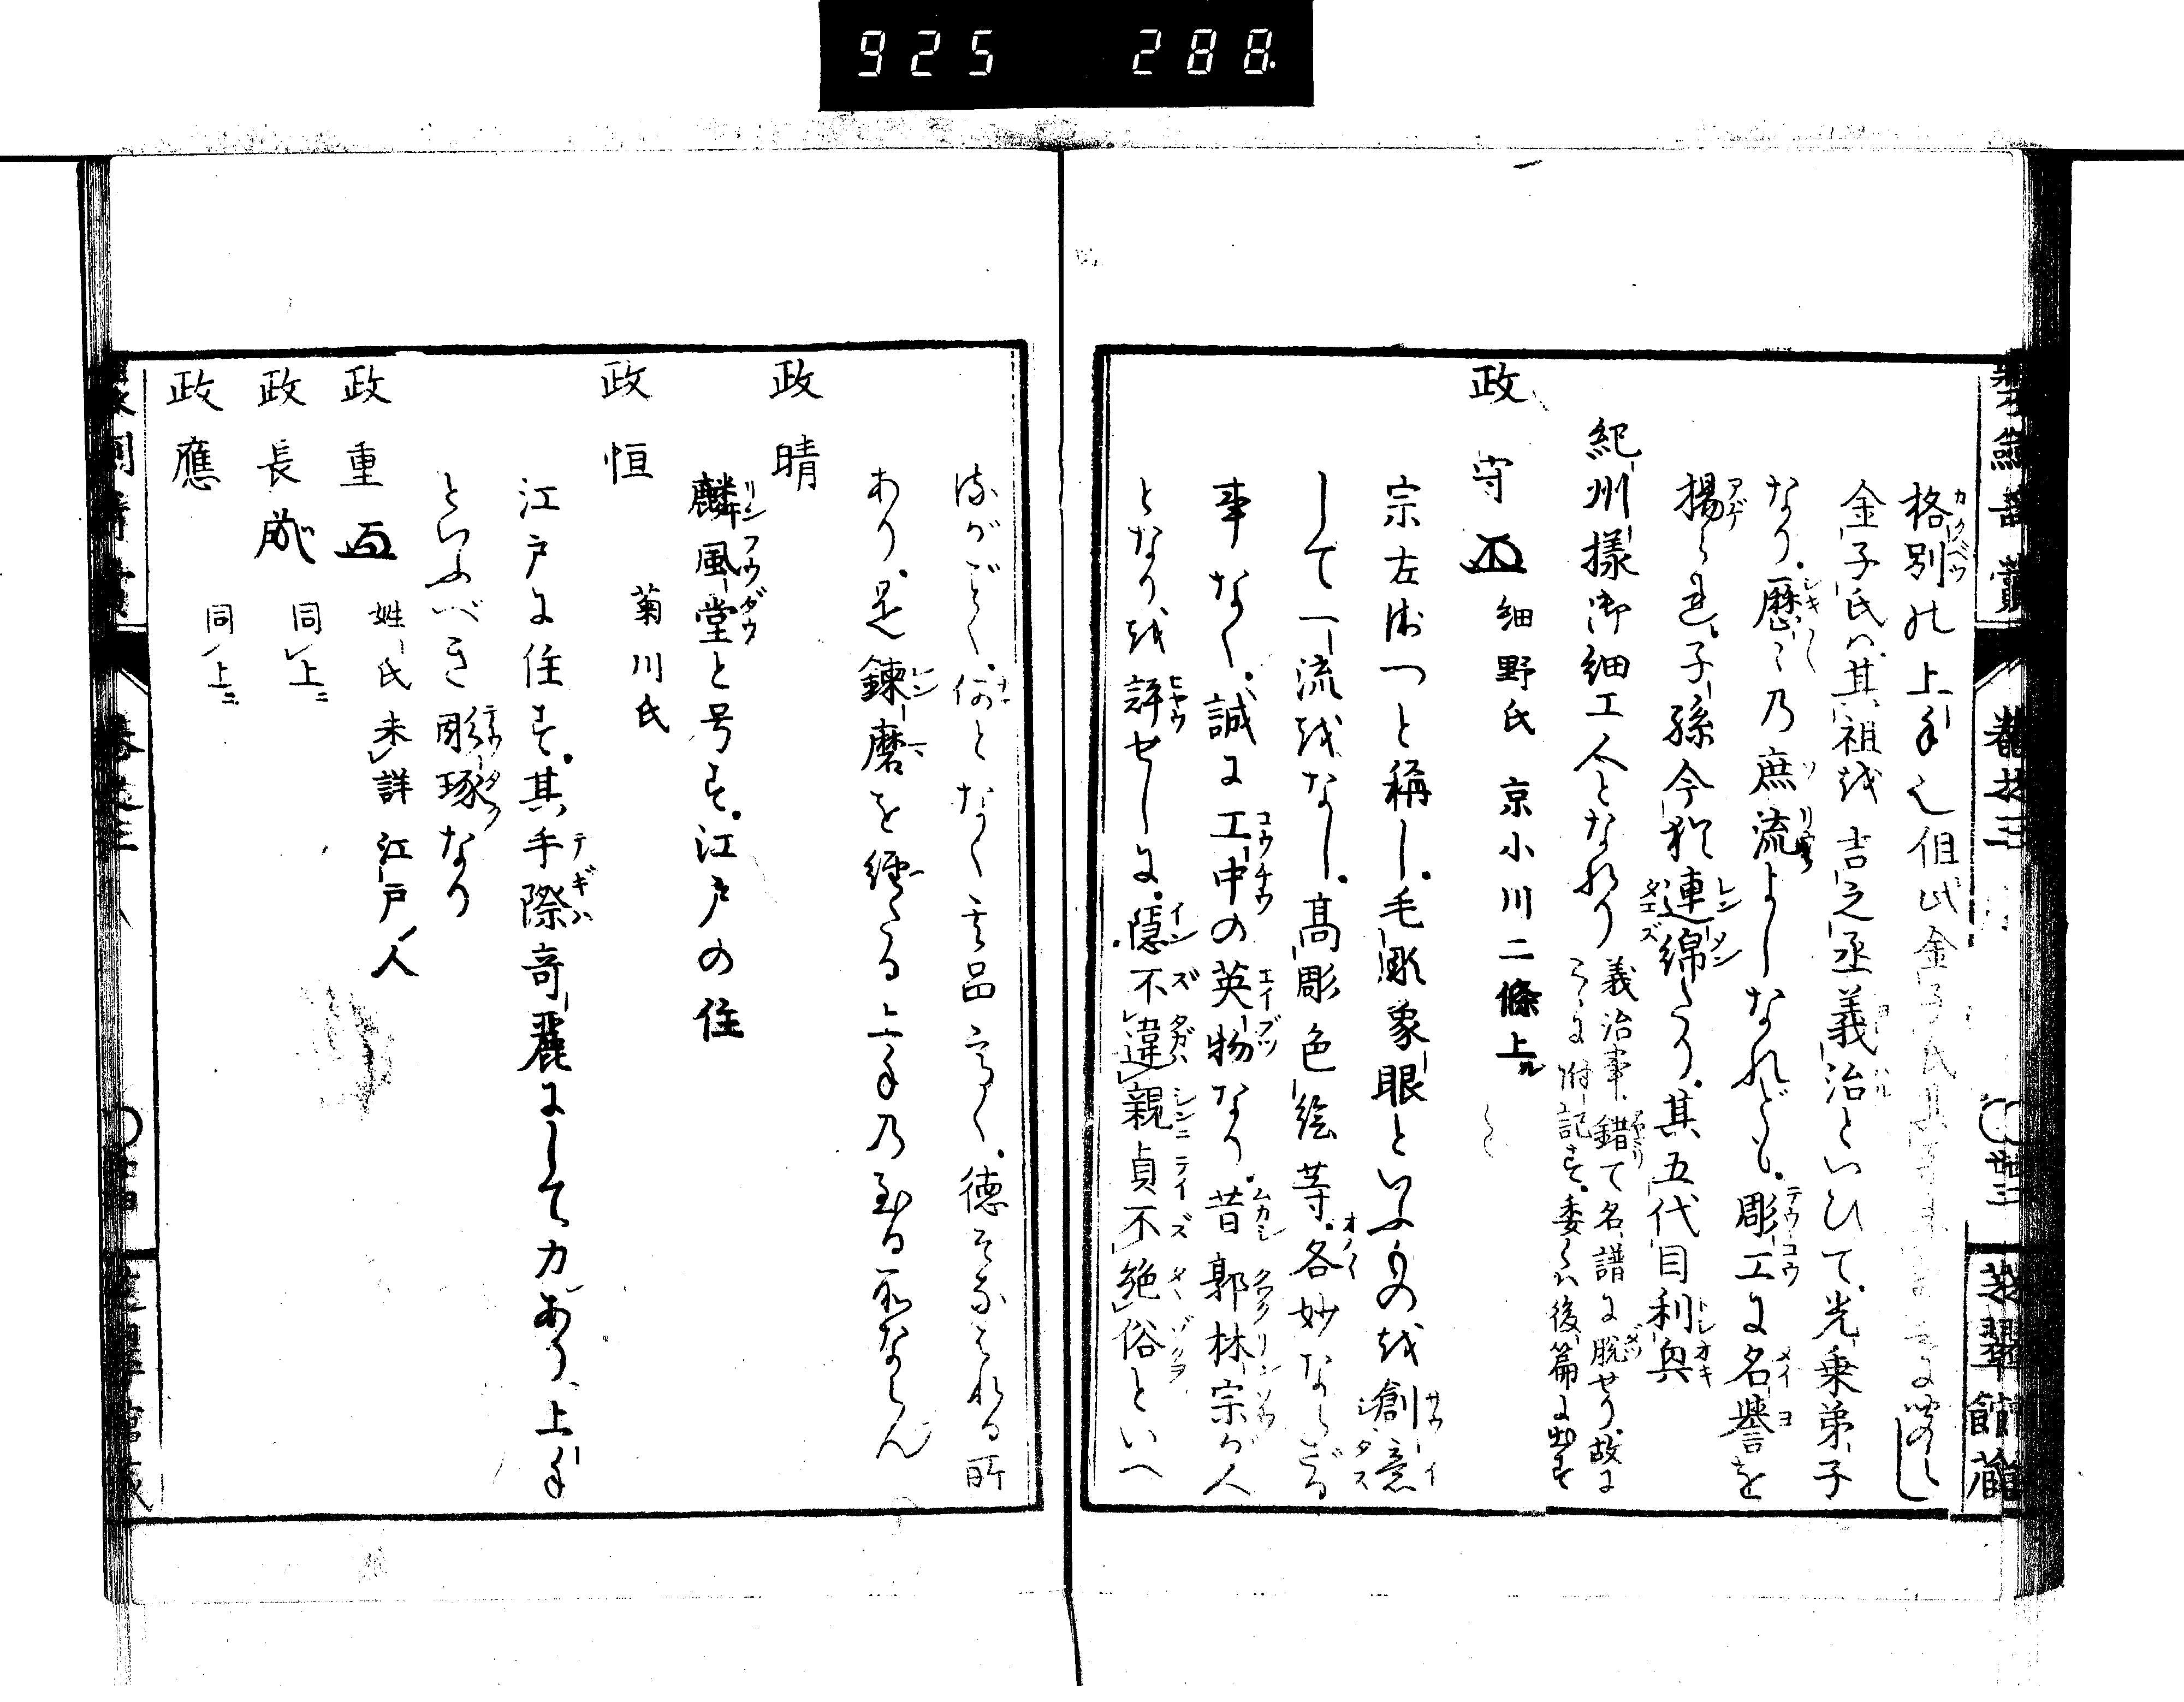 925 288
格別の上手也但此金子氏其
金子氏ハ其祖を吉之丞義治といひて光乗弟子
なり歴々乃庶流よしなれども彫工に名譽を
揚られ子孫今猶連綿たり其五代目利奥
紀州様御細工人となれり
義治事錯て名譜に脱せり故に
こゝに附記す委くハ後篇に出す
政守 細野氏 京小川二條上ル
宗左衛つと稱し毛彫象眼といふものを創意
して一流をなし高彫色絵等各妙ならざる
事なく誠に工中の英物なり昔郭林宗が人
となりを評せしに隱不違親貞不絶俗といへ
るがごとく何となく其品高く徳そなはれる所
あり是鍊磨を經たる上手乃至る所ならん
政晴
麟風堂と号す江戸の住
政恒 菊川氏
江戸に住す其手際奇麗にして力あり上手
といふべき彫琢なり
政重 姓氏未詳江戸ノ人
政長 同上ニ
政應 同上ニ